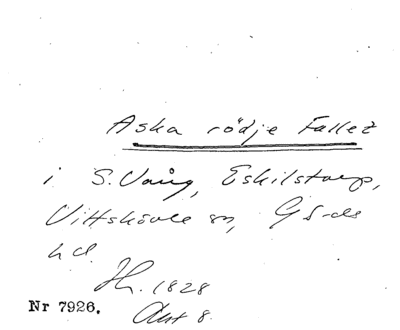 Aska rödje Fallet
i S. Vång, Eskilstorp,
Vittskövle sn, Gärds
hd.
Hh. 1828
Akt 8.
Nr 7926.